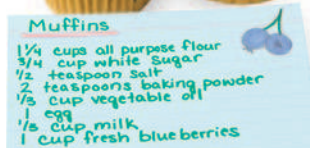 Muffins
1 1/4 cups all purpose flour
3/4 cup white sugar
1/2 teaspoon salt
2 teaspoons baking powder
1/3 cup vegetable oil
1 egg
1/3 cup milk
1 cup fresh blueberries